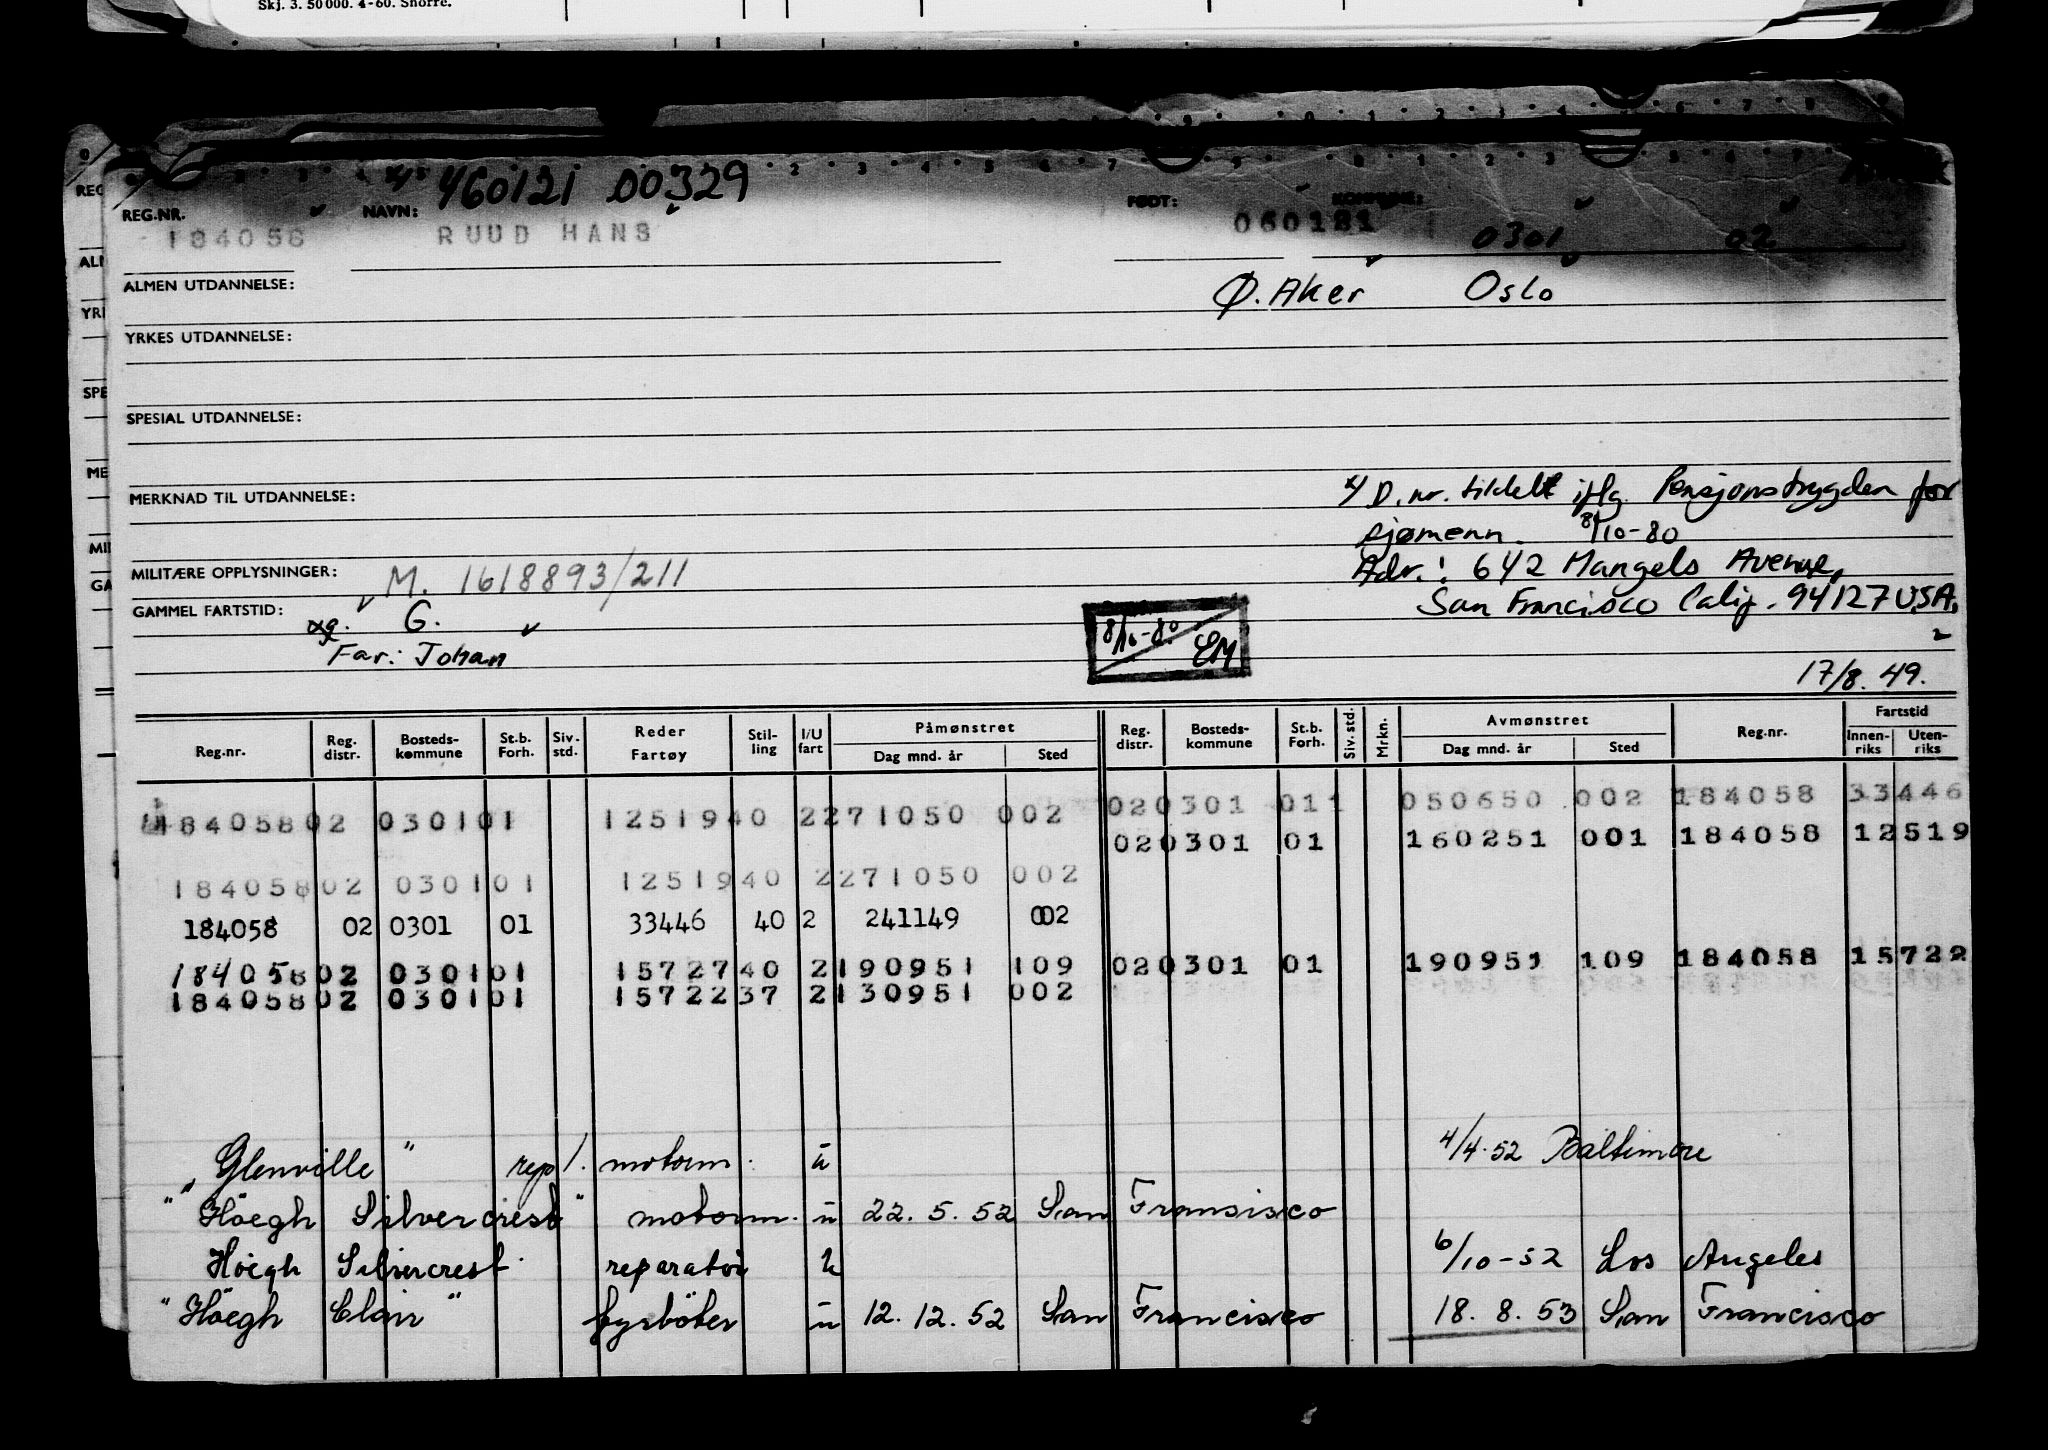 Skj. 3. 50 000. 4-60. Snorre.
460121 00329
REG.NR. NAVN: FØDT: KOMMUNE:
184058 RUUD HANS 060121 0301 02
ALMEN UTDANNELSE: Ø. Aker Oslo
YRKES UTDANNELSE:
SPESIAL UTDANNELSE:
MERKNAD TIL UTDANNELSE: x/ D.nr. tildelt iflg. Pensjonstrygden for
sjømenn. 8/10-80
MILITÆRE OPPLYSNINGER: M. 1618893/211 Adr.: 642 Mangels Avenue,
GAMMEL FARTSTID: San Francisco Calif. 94127 USA.
og. G. 8/10-80 EM
Far: Johan
17/8. 49.
Reg.nr. Reg. distr. Bosteds-kommune St.b. Forh. Siv. std. Reder Fartøy Stil-ling I/U fart Påmønstret Dag mnd. år Sted Reg. distr. Bosteds-kommune St.b. Forh. Siv. std. Mrkn. Avmønstret Dag mnd. år Sted Reg.nr. Fartstid Innen-riks Uten-riks
020301 011 050650 002 184058 33446
184058 02 0301 01 12519 40 2 271050 002
020301 01 160251 001 184058 12519
184058 02 0301 01 12519 40 2 271050 002
184058 02 0301 01 33446 40 2 241149 002
184058 02 0301 01 15727 40 2 190951 109 020301 01 190951 109 184058 15722
184058 02 0301 01 15722 37 2 130951 002
"Glenville" rep/. motorm. u 4/4.52 Baltimore
"Höegh Silvercrest" motorm. u 22.5.52 San Fransisco
Höegh Silvercrest reparatör u 6/10-52 Los Angeles
"Höegh Clair" fyrböter u 12.12.52 San Francisco 18.8.53 San Francisco